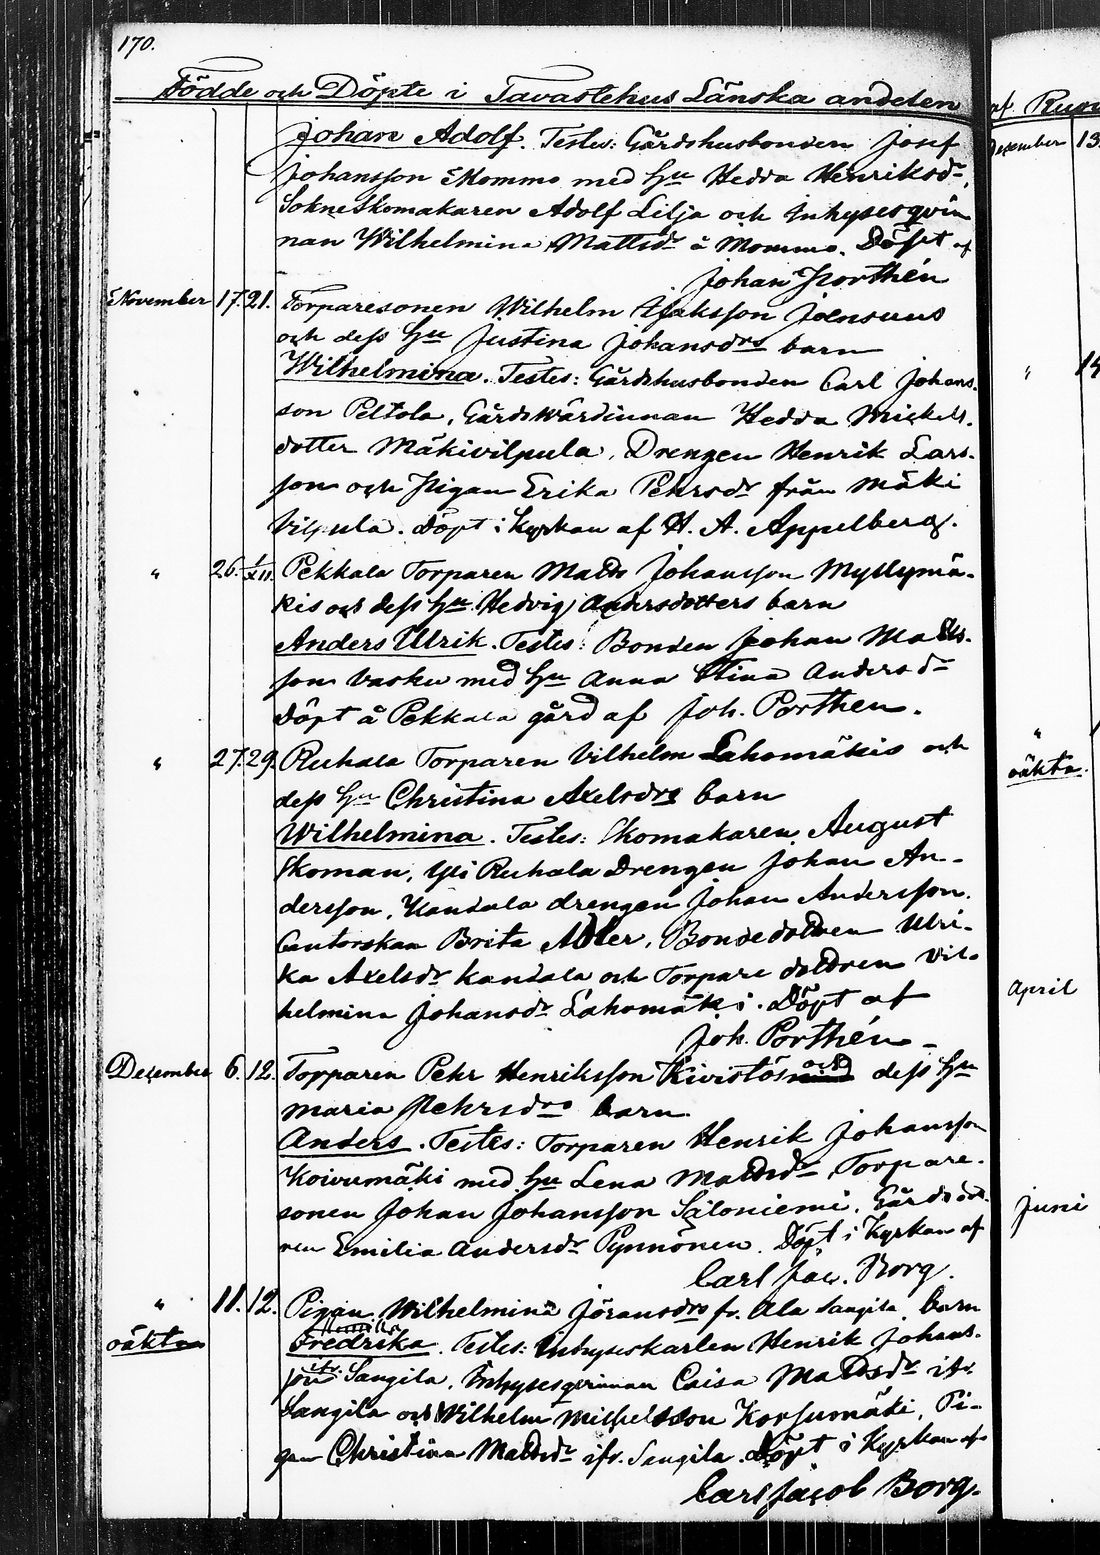 170.
Födde och Döpte i Tavastehus Länska andelen
Johan Adolf. Testes: Gårdshusbonden Josef
Johansson Mommo med Hu Hedda Henriksdr,
Sokneskomakaren Adolf Lilja och Inhysesqvin
nan Wilhelmina Mattsdr å Mommo. Döpt af
Johan Porthén
November 17. 21. Torparesonen Wilhelm Isaksson Joensuus
och dess Hu Justina Johansdrs barn
Wilhelmina. Testes: Gårdshusbonden Carl Johans-
son Peltola, Gårdswärdinnan Hedda Mickels-
dotter Mäkivilpula, Drengen Henrik Lars-
son och Pigan Erika Pehrsdr från Mäki
Vilpula. Döpt i Kyrkan af H. A. Appelberg.
" 26. 1/XII. Pekkala Torparen Matts Johansson Myllymä-
kis och dess Hu Hedvig Andersdotters barn
Anders Ulrik. Testes: Bonden Johan Matts-
son Vasku med Hu Anna Stina Andersdr
Döpt å Pekkala gård af Joh. Porthen.
" 27. 29. Ruhala Torparen Vilhelm Lahomäkis och
dess Hu Christina Axelsdrs barn
Wilhelmina. Testes: Skomakaren August
Skoman, Yli Ruhala Drengen Johan An-
dersson, Kandala drengen Johan Andersson.
Cantorskan Brita Adler, Bondedottren Ulri-
ka Axelsdr Kandala och Torpare dottren Vil-
helmina Johansdr Lahomäki. Döpt af
Joh. Porthén
December 6. 12. Torparen Pehr Henriksson Kivistös och dess Hu
Maria Pehrsdrs barn
Anders. Testes: Torparen Henrik Johansson
Koivumäki med Hu Lena Mattsdr, Torpare-
sonen Johan Johansson Saloniemi, Gårdsdot-
ren Emilia Andersdr Pynnönen. Döpt i Kyrkan af
Carl Jac. Borg.
" 11. 12. Pigan Wilhelmina Jöransdrs fr. Ala Sangila barn
oäkta Fredrika. Testes: Inhyseskarlen Henrik Johans-
son ifr. Sangila, Inhysesqvinnan Caisa Mattsdr ifr.
Sangila och Wilhelm Korsumäki, Pi-
gan Christina Mattsdr ifr. Sangila. Döpt i Kyrkan af
Carl Jacob Borg.
af
December 13.
"
"
oäkta.
April
Juni